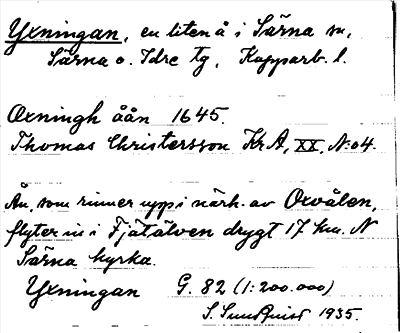 Yxningan, en liten å i Särna sn,
Särna o. Idre tg, Kopparb. l.
Oxningh åån 1645.
Thomas Christersson KrA, XX, No 4.
Ån, som rinner upp i närh. av Oxvålen,
flyter in i Fjätälven drygt 17 km. N
Särna kyrka.
Yxningan G. 82 (1:200.000)
S. Sundqvist 1935.